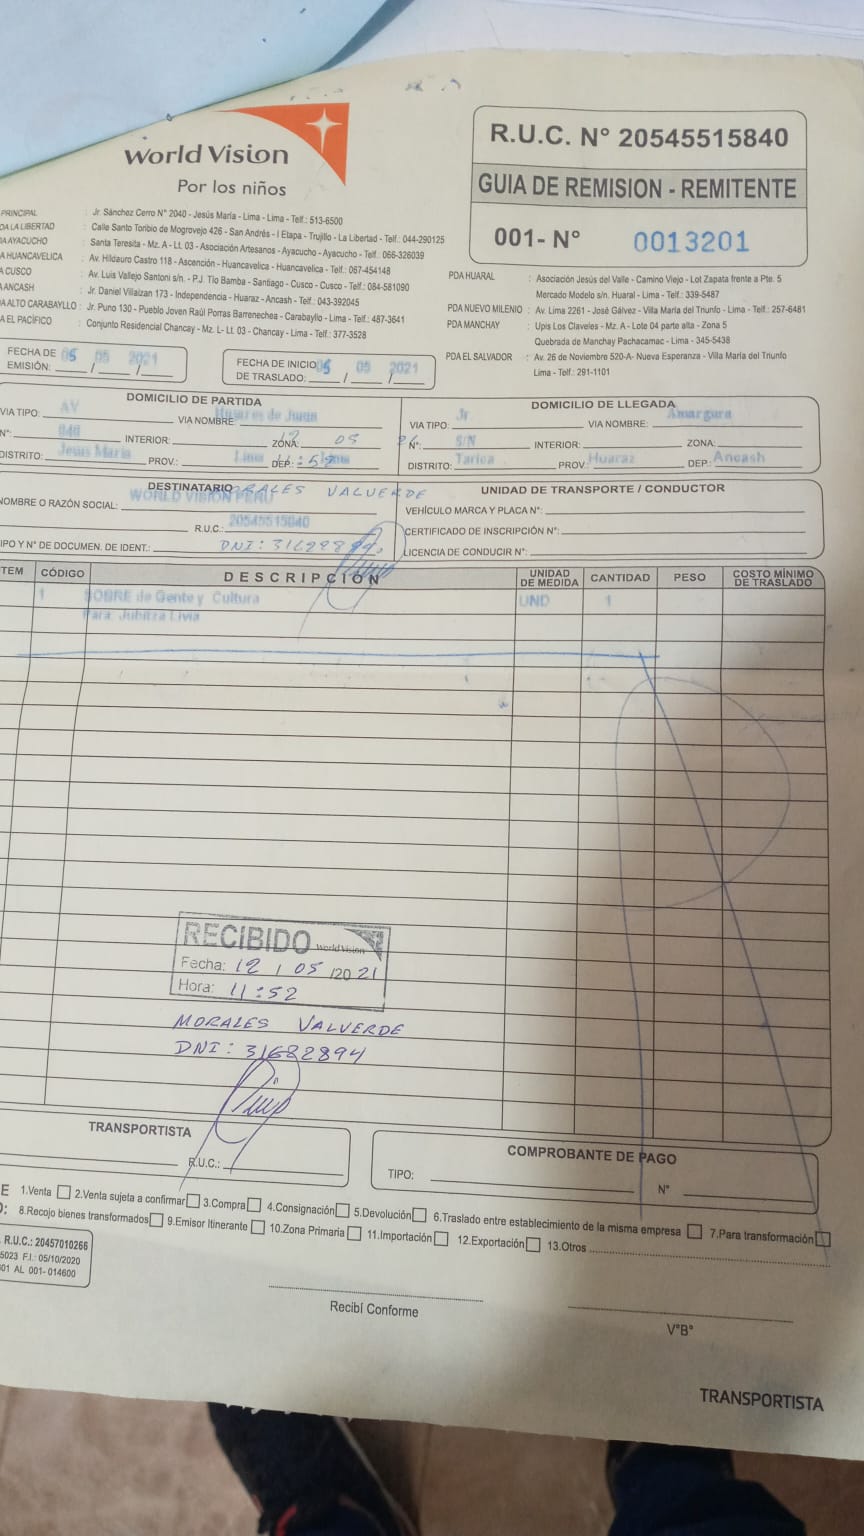 World Vision
Por los niños
R.U.C. N° 20545515840
GUIA DE REMISION - REMITENTE
001- N° 0013201
PRINCIPAL : Jr. Sánchez Cerro N° 2040 - Jesús María - Lima - Lima - Telf.: 513-6500
DA LA LIBERTAD : Calle Santo Toribio de Mogrovejo 426 - San Andrés - I Etapa - Trujillo - La Libertad - Telf.: 044-290125
A AYACUCHO : Santa Teresita - Mz. A - Lt. 03 - Asociación Artesanos - Ayacucho - Ayacucho - Telf. 066-326039
A HUANCAVELICA : Av. Hildauro Castro 118 - Ascención - Huancavelica - Huancavelica - Telf.: 067-454148
A CUSCO : Av. Luis Vallejo Santoni s/n. - P.J. Tío Bamba - Santiago - Cusco - Cusco - Telf.: 084-581090
ANCASH : Jr. Daniel Villaizan 173 - Independencia - Huaraz - Ancash - Telf.: 043-392045
A ALTO CARABAYLLO : Jr. Puno 130 - Pueblo Joven Raúl Porras Barrenechea - Carabayllo - Lima - Telf.: 487-3641
A EL PACÍFICO : Conjunto Residencial Chancay - Mz. L- Lt. 03 - Chancay - Lima - Telf.: 377-3528
PDA HUARAL : Asociación Jesús del Valle - Camino Viejo - Lol Zapata frente a Pte. 5
Mercado Modelo s/n. Huaral - Lima - Telf.: 339-5487
PDA NUEVO MILENIO : Av. Lima 2261 - José Gálvez - Villa María del Triunfo - Lima - Telf.: 257-6481
PDA MANCHAY : Upis Los Claveles - Mz. A - Lote 04 parte alta - Zona 5
Quebrada de Manchay Pachacamac - Lima - 345-5438
PDA EL SALVADOR : Av. 26 de Noviembre 520-A- Nueva Esperanza - Villa María del Triunfo
Lima - Telf.: 291-1101
FECHA DE EMISIÓN: 05 / 05 / 2021
FECHA DE INICIO DE TRASLADO: 05 / 05 / 2021
DOMICILIO DE PARTIDA
VIA TIPO: AV VIA NOMBRE: Husares de Junin
N°: 940 INTERIOR: ZONA: 12 05
DISTRITO: Jesus Maria PROV.: Lima DEP.: Lima
DOMICILIO DE LLEGADA
VIA TIPO: Jr. VIA NOMBRE: Amargura
N°: S/N INTERIOR: ZONA:
DISTRITO: Tarica PROV: Huaraz DEP.: Ancash
DESTINATARIO
NOMBRE O RAZÓN SOCIAL: WORLD VISION PERU
RALES VALVERDE
R.U.C.: 20545515840
IPO Y N° DE DOCUMEN. DE IDENT.: DNI:
UNIDAD DE TRANSPORTE / CONDUCTOR
VEHÍCULO MARCA Y PLACA N°:
CERTIFICADO DE INSCRIPCIÓN N°:
LICENCIA DE CONDUCIR N°:
TEM CÓDIGO DESCRIPCIÓN UNIDAD DE MEDIDA CANTIDAD PESO COSTO MÍNIMO DE TRASLADO
1 SOBRE de Gente y Cultura UND 1
Para: Jubitza Livia
RECIBIDO World Vision
Fecha: 12 / 05 /2021
Hora: 11:52
MORALES VALVERDE
DNI: 31682894
TRANSPORTISTA
R.U.C.:
COMPROBANTE DE PAGO
TIPO: N°
E 1.Venta 2.Venta sujeta a confirmar 3.Compra 4.Consignación 5.Devolución 6.Traslado entre establecimiento de la misma empresa 7.Para transformación
O: 8.Recojo bienes transformados 9.Emisor Itinerante 10.Zona Primaria 11.Importación 12.Exportación 13.Otros
R.U.C.: 20457010266
5023 F.I.: 05/10/2020
01 AL 001- 014600
Recibí Conforme
V°B°
TRANSPORTISTA